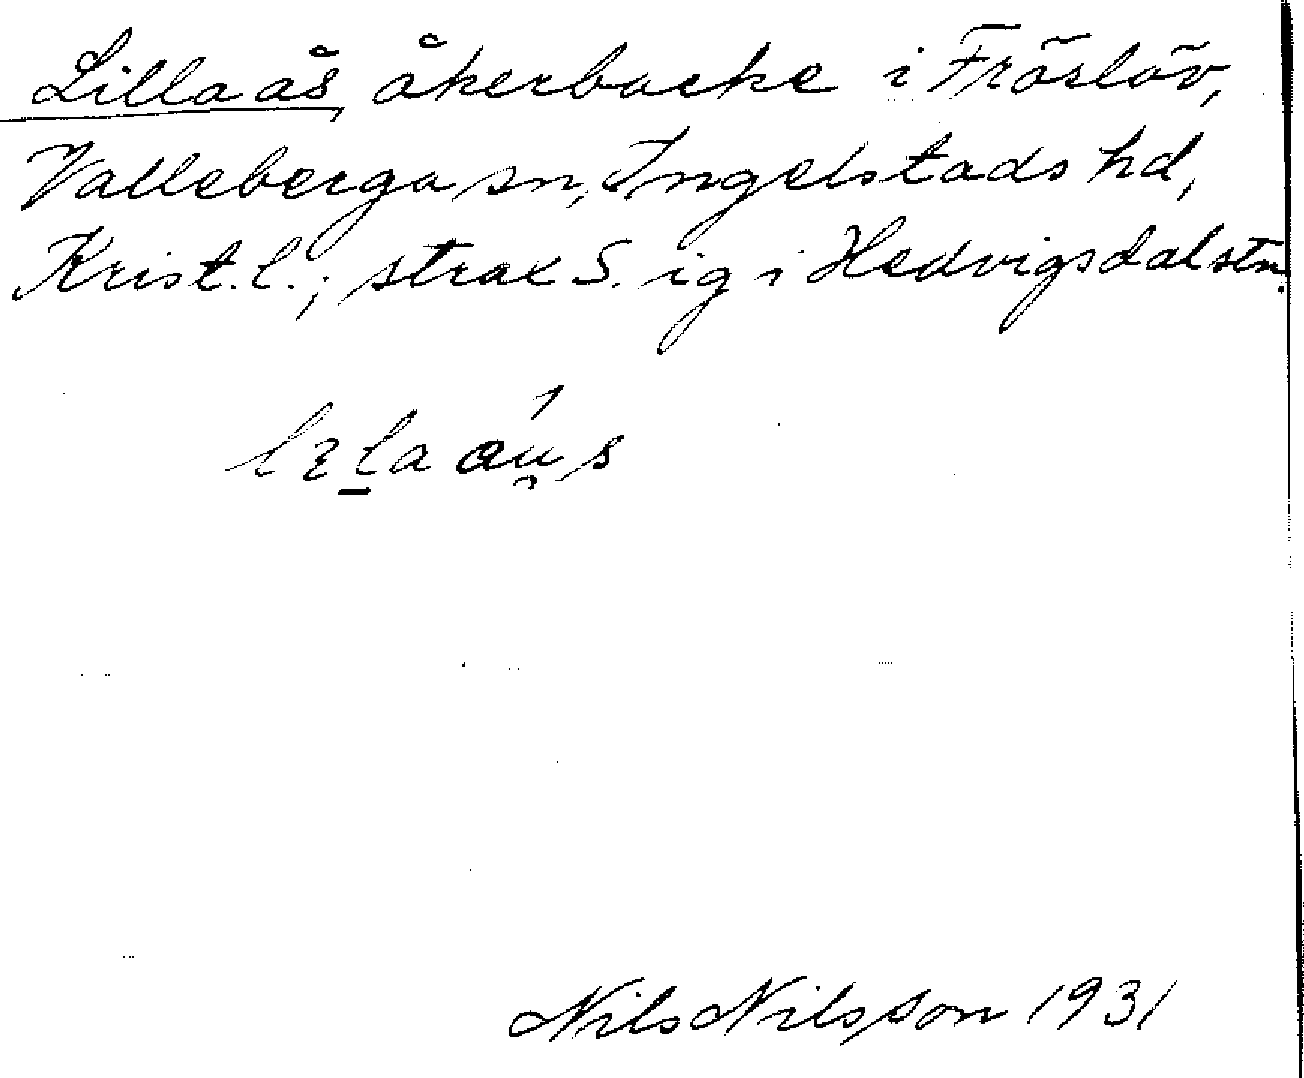 Lilla ås, åkerbacke i Fröslöv,
Valleberga sn, Ingelstads hd,
Krist. l.; strax S. ig i Hedvigsdal stn.
Nils Nilsson 1931